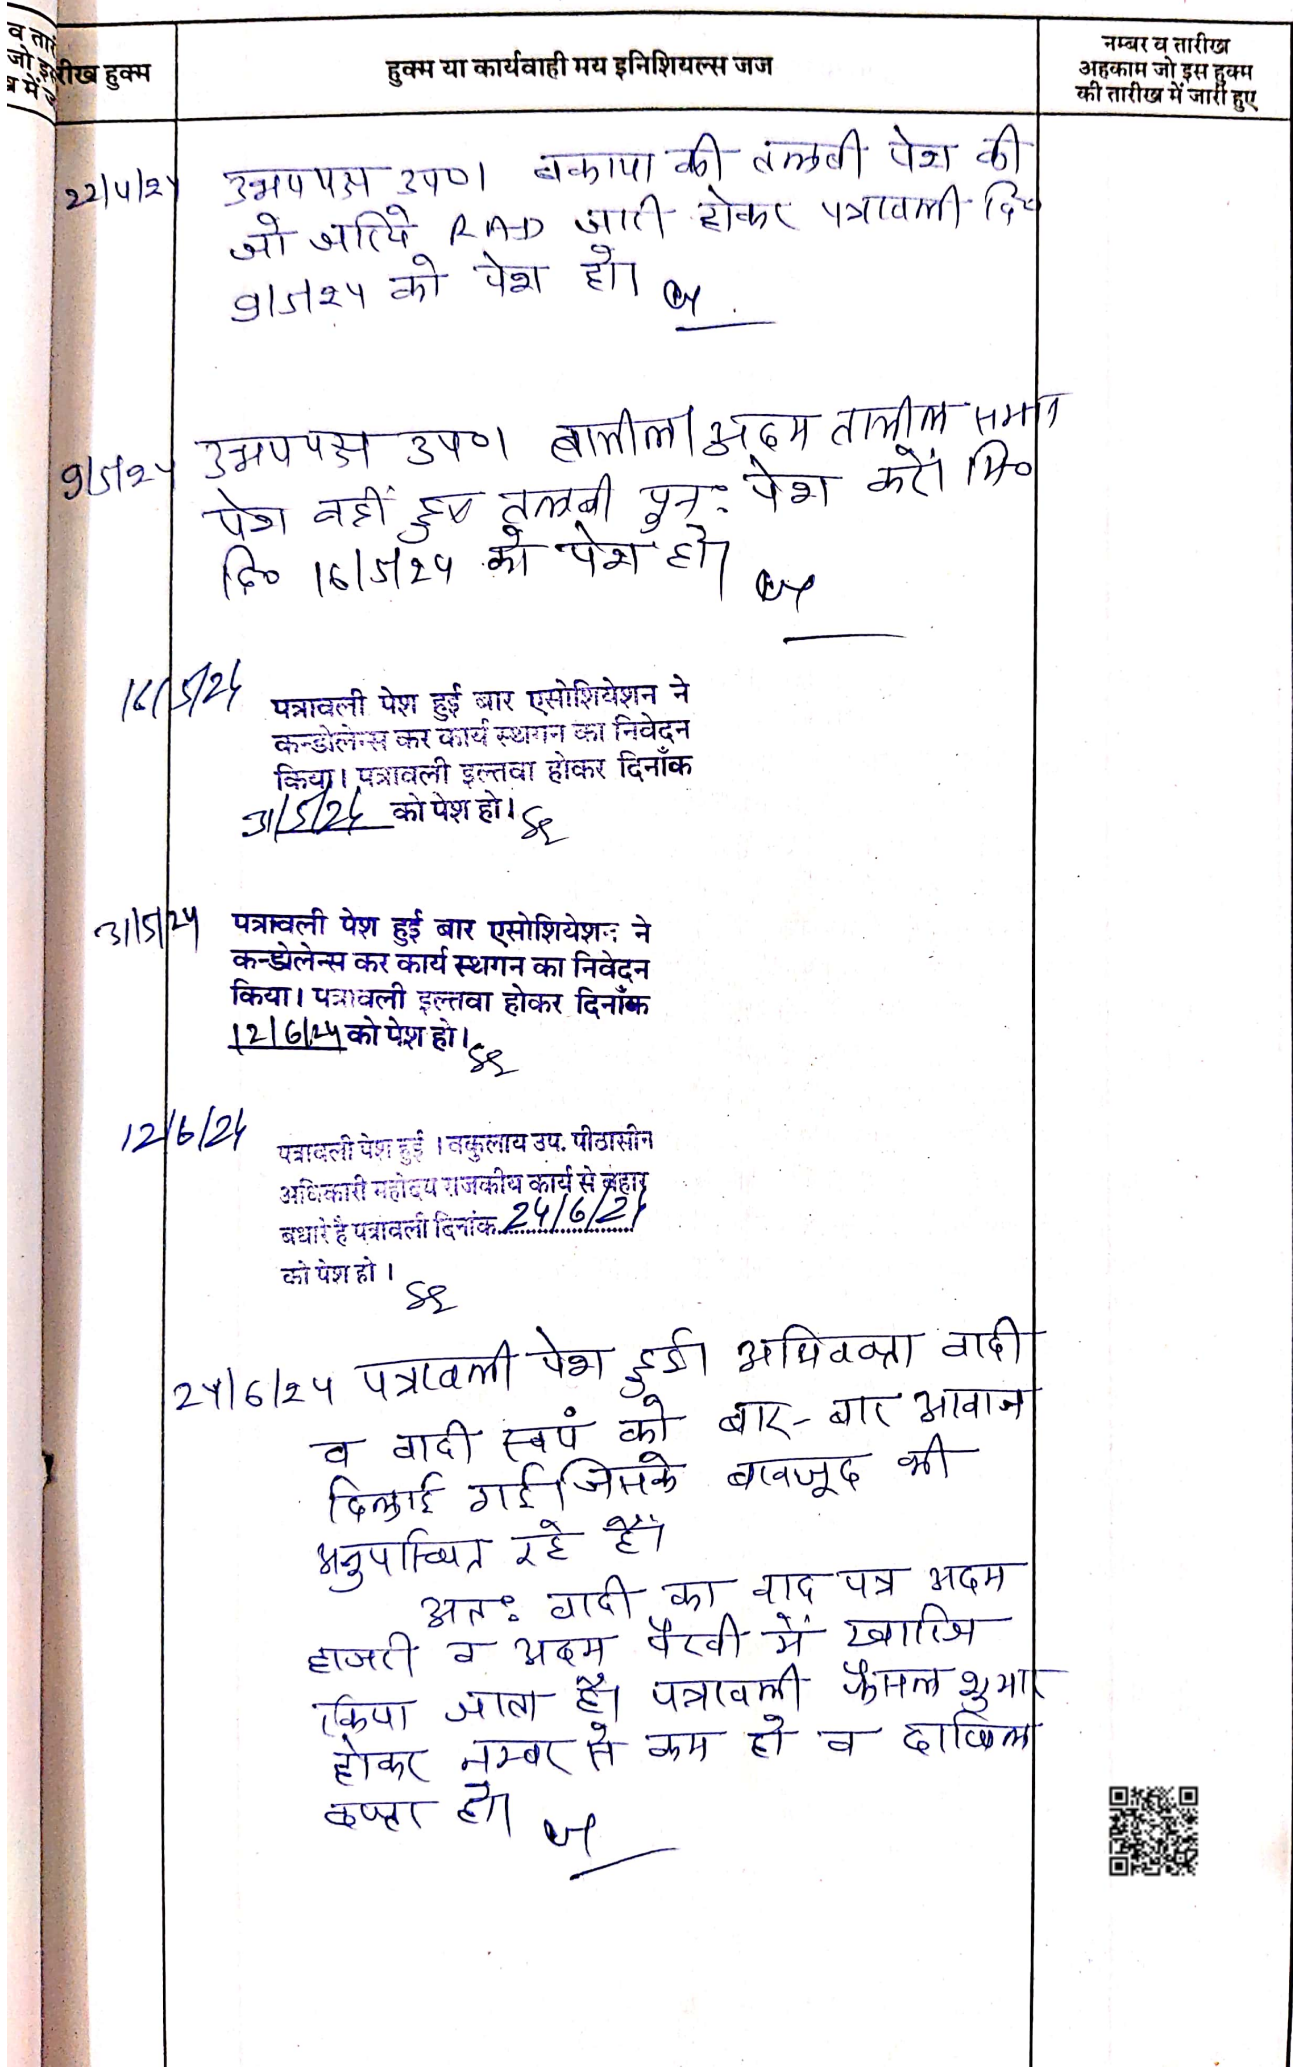 व तारी
जो इस
ख में ज
तारीख हुक्म
हुक्म या कार्यवाही मय इनिशियल्स जज
नम्बर व तारीख
अहकाम जो इस हुक्म
की तारीख में जारी हुए
22/4/24 उभयपक्ष उप०। बकाया की तलबी पेश की
जो जरिये RAD जारी होकर पत्रावली दि०
9/5/24 को पेश हो।
9/5/24 उभयपक्ष उप०। तामील/अदम तामील
पेश नहीं हुए तलबी पुनः पेश करें। मि०
दि० 16/5/24 को पेश हो।
16/5/24 पत्रावली पेश हुई बार एसोशियेशन ने
कन्डोलेन्स कर कार्य स्थगन का निवेदन
किया। पत्रावली इल्तवा होकर दिनाँक
31/5/24 को पेश हो।
31/5/24 पत्रावली पेश हुई बार एसोशियेशन ने
कन्डोलेन्स कर कार्य स्थगन का निवेदन
किया। पत्रावली इल्तवा होकर दिनाँक
12/6/24 को पेश हो।
12/6/24 पत्रावली पेश हुई । वकुलाय उप. पीठासीन
अधिकारी महोदय राजकीय कार्य से बहार
बधारे है पत्रावली दिनांक 24/6/24
को पेश हो ।
24/6/24 पत्रावली पेश हुई। अधिवक्ता वादी
व वादी स्वयं को बार-बार आवाज
दिलाई गई। जिसके बावजूद भी
अनुपस्थित रहे हैं।
अतः वादी का वाद पत्र अदम
हाजरी व अदम पैरवी में खारिज
किया जाता है। पत्रावली फैसल शुमार
होकर नम्बर से कम हो व दाखिल
दफ्तर हो।